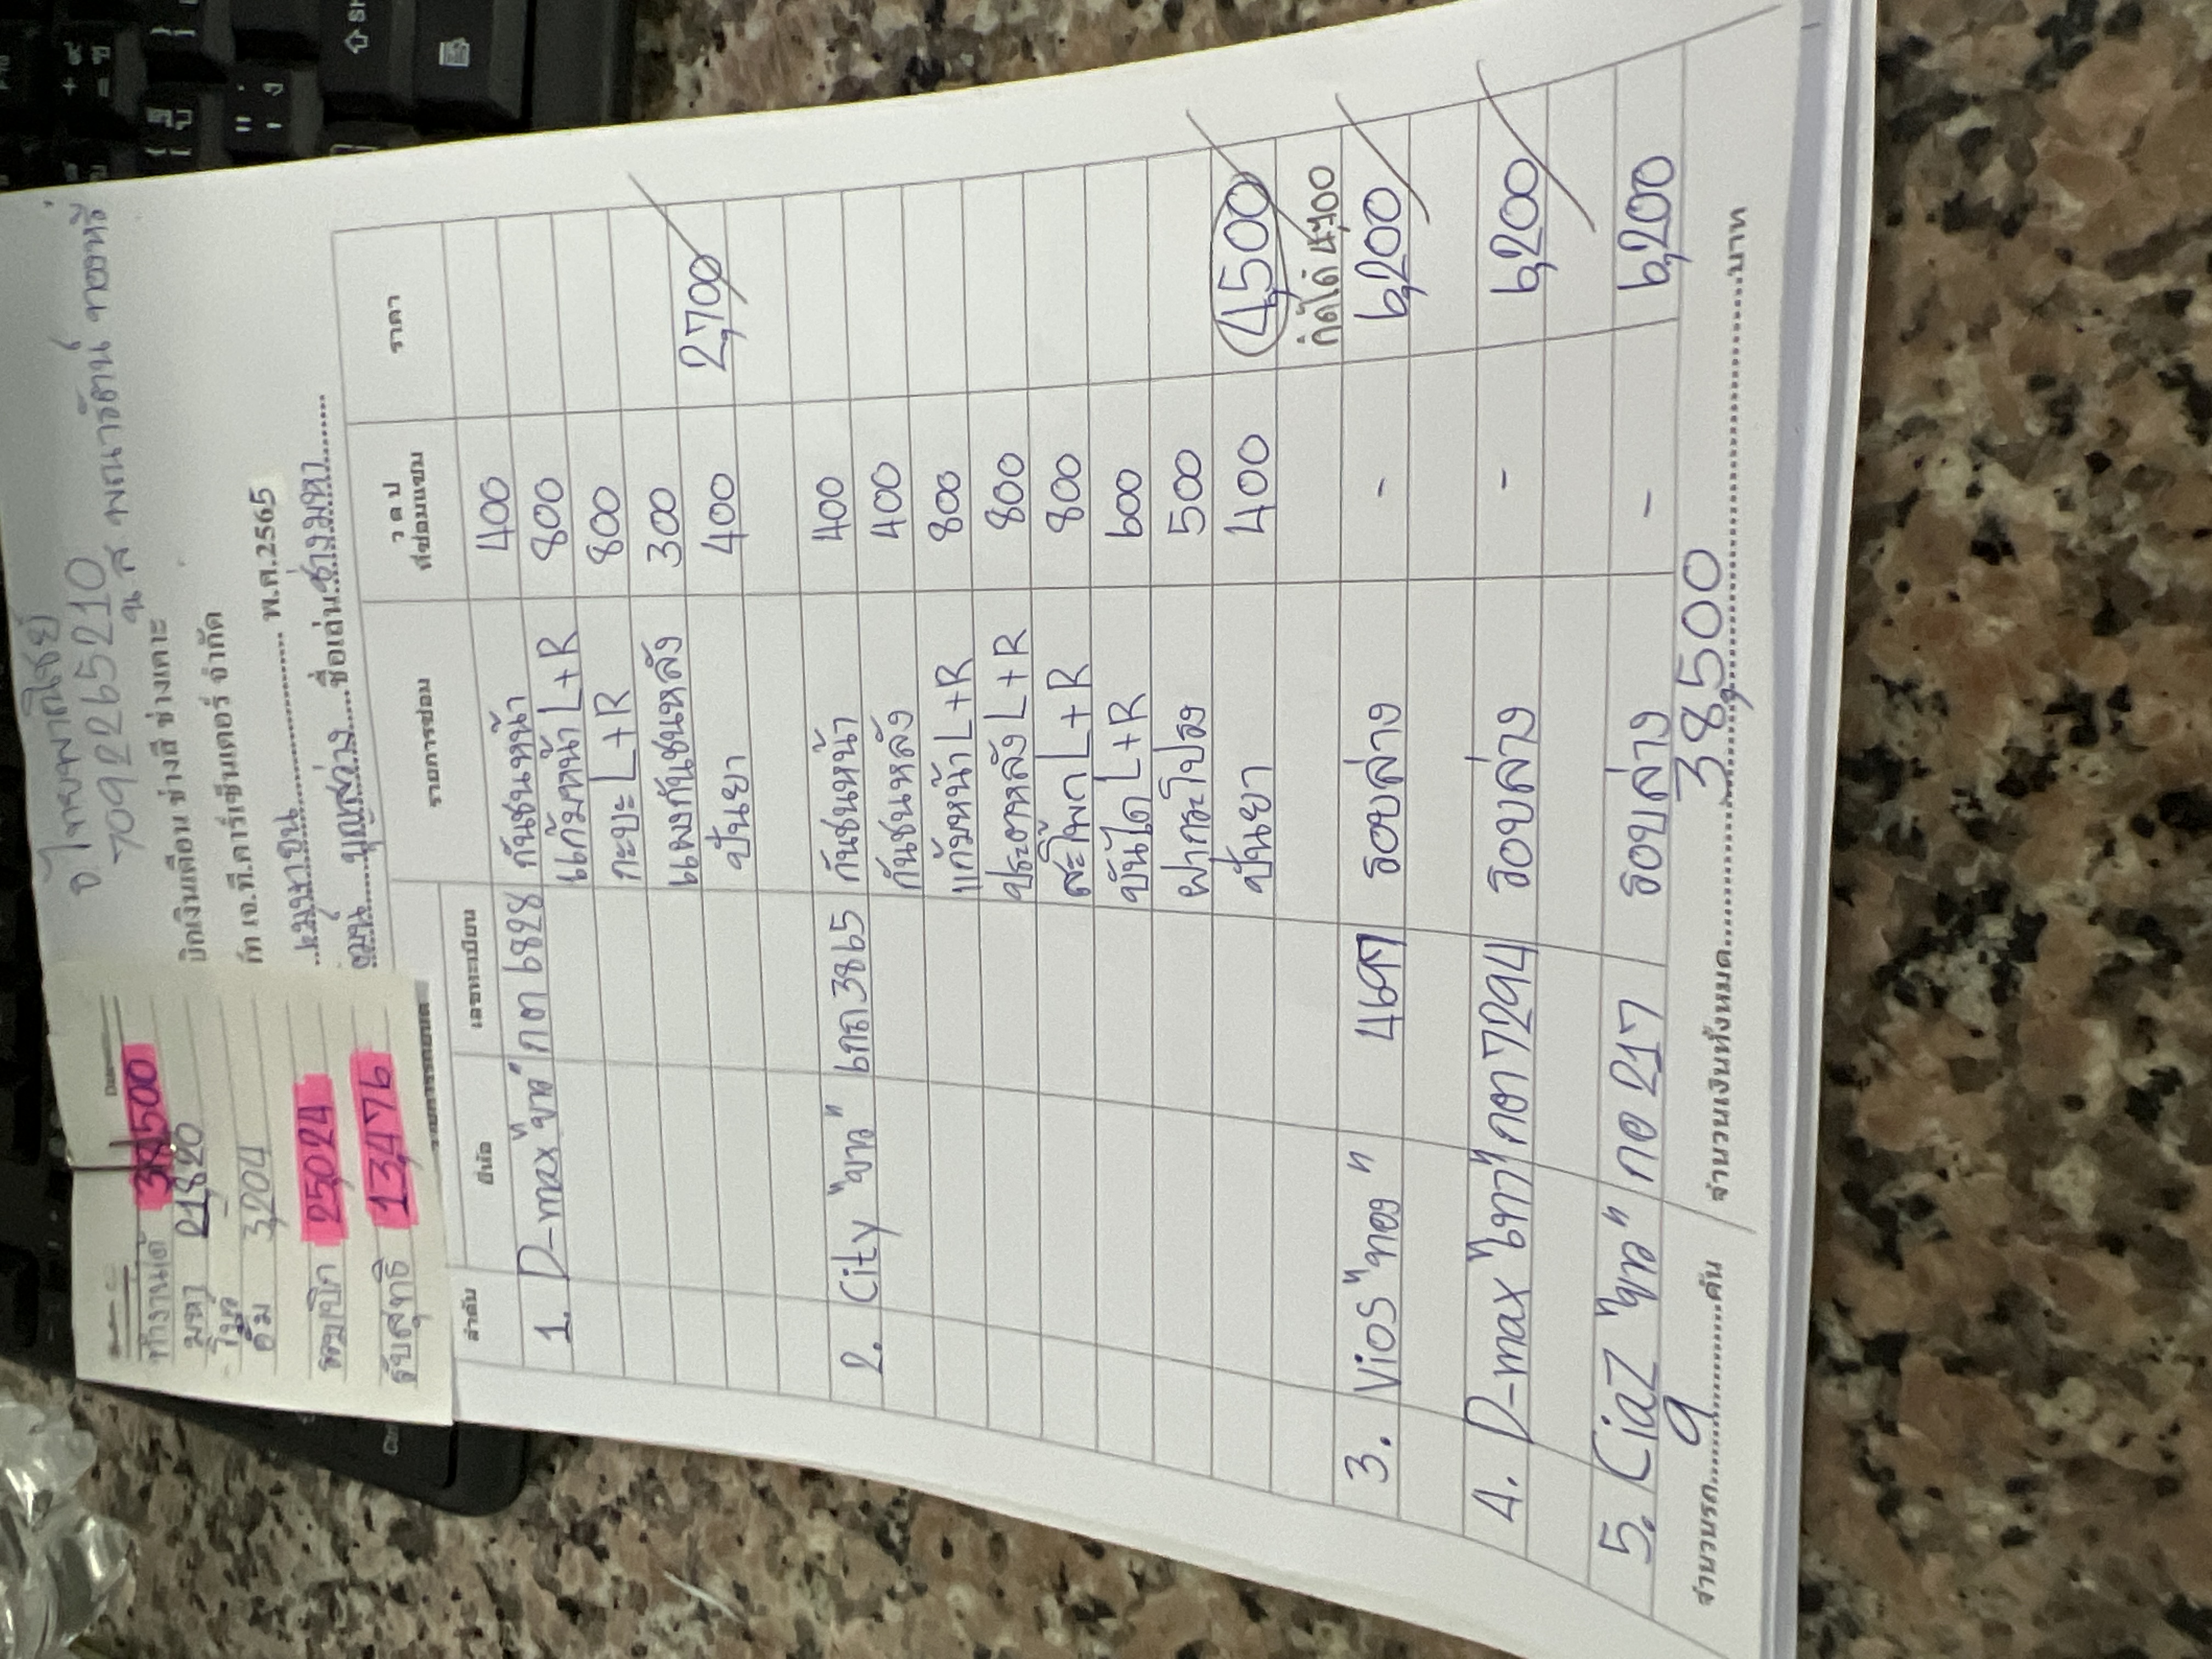 จ.ไทยพาณิชย์
7092265210
น.ส
เบิกเงินเดือน ช่างสี ช่างเคาะ
เจ.ที.คาร์เซ็นเตอร์ จำกัด
เมษายน พ.ศ.2565
บุญสว่าง ชื่อเล่น ช่างมหา
ทำงานได้ 38,500
มหา 21,820
อิ่ม 3,204
รวมเบิก 25,024
รับสุทธิ 13,476
ลำดับ ยี่ห้อ เลขทะเบียน รายการซ่อม ว ด ป ที่ซ่อมแซม ราคา
1. D-max "ขาว" กตา 6828 กันชนหน้า 400
แก้มหน้า L+R 800
กะบะ L+R 800
แผงกันชนหลัง 300
ปั่นยา 400 2,700
2. City "ขาว" 3865 กันชนหน้า 400
กันชนหลัง 400
แก้มหน้า L+R 800
ประตูหลัง L+R 800
สะโพก L+R 800
บันได L+R 600
ฝากระโปรง 500
ปั่นยา 400 4,500
คิดได้ 4,700
3. Vios "ทอง" 4697 รอบล่าง - 6,200
4. D-max "เทา" 7294 รอบล่าง - 6,200
5. Ciaz "ขาว" กอ 217 รอบล่าง - 6,200
จำนวนรถ 9 คัน จำนวนเงินทั้งหมด 38,500 บาท